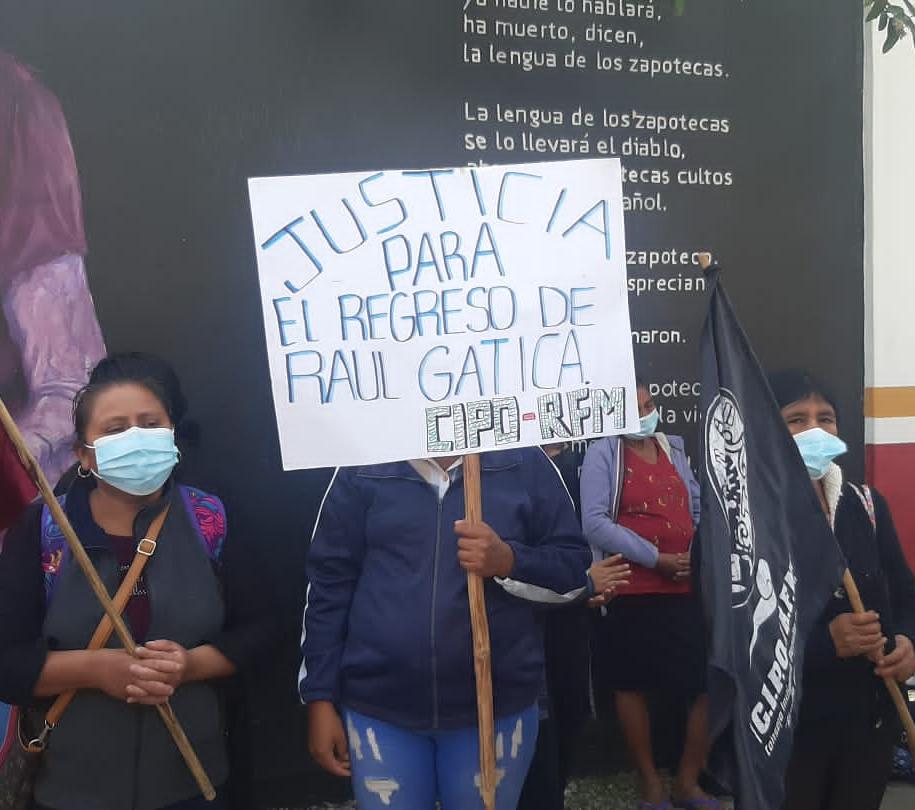 ya nadie lo hablará,
ha muerto, dicen,
la lengua de los zapotecas.
La lengua de los zapotecas
se lo llevará el diablo,
tecas cultos
añol.
zapoteco.
sprecian
naron.
potec
la vi
JUSTICIA
PARA
EL REGRESO DE
RAUL GATICA.
CIPO-RFM
C.I.P.O.-R.F.M